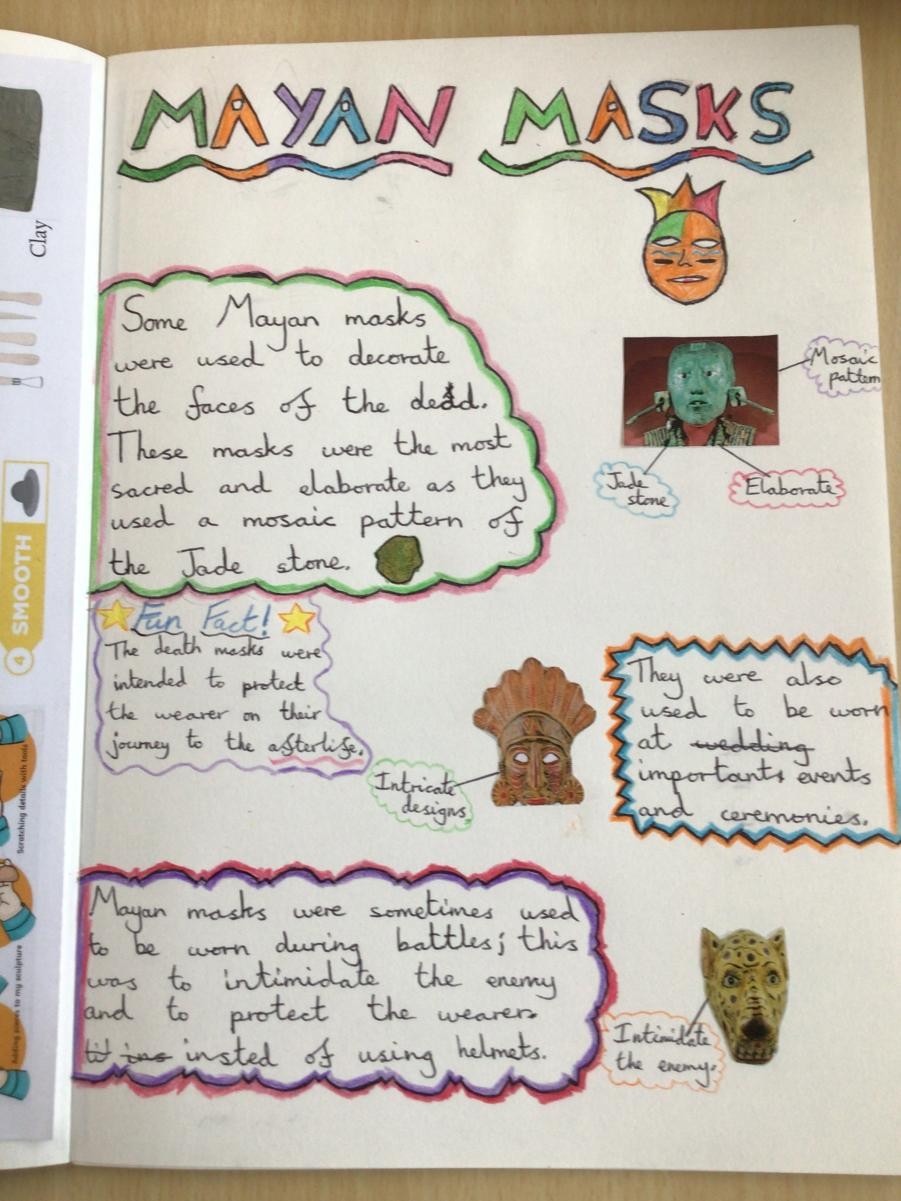 MAYAN MASKS
Some Mayan masks
were used to decorate
the faces of the dead.
These masks were the most
sacred and elaborate as they
used a mosaic pattern of
the Jade stone.
Mosaic
pattern
Jade
stone
Elaborate
Fun Fact!
The death masks were
intended to protect
the wearer on their
journey to the afterlife.
Intricate
designs
They were also
used to be worn
at wedding
important events
and ceremonies.
Mayan masks were sometimes used
to be worn during battles; this
was to intimidate the enemy
and to protect the wearer
insted of using helmets.
Intimidate
the enemy.
Clay
4 SMOOTH
Scratching details with tools
to my sculpture